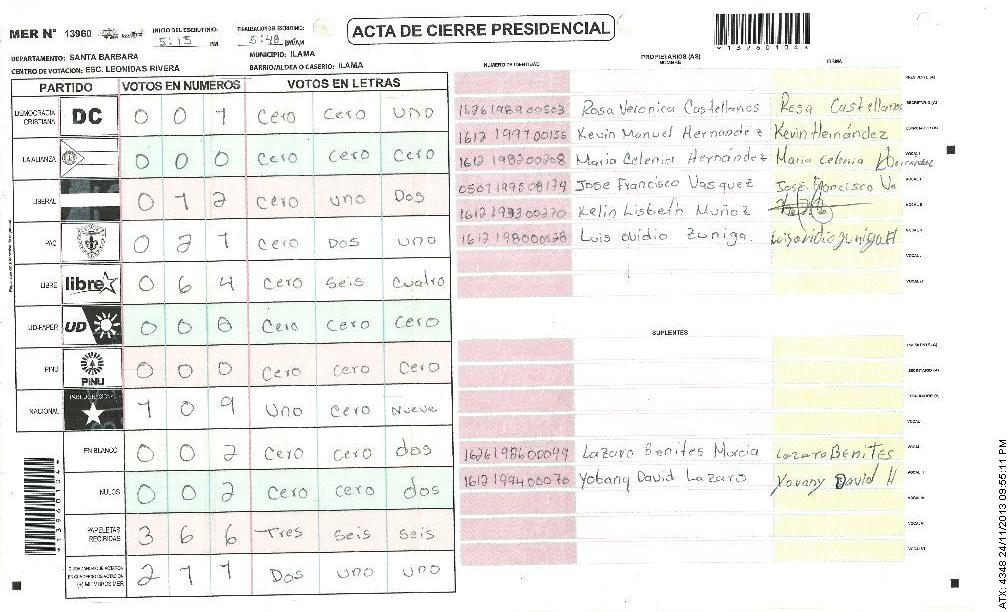 MER N° 13960
INICIO DEL ESCRUTINIO: 5:15 PM
FINALIZACION DEL ESCRUTINIO: 5:48 PM/AM
ACTA DE CIERRE PRESIDENCIAL
*13960104*
DEPARTAMENTO: SANTA BARBARA
MUNICIPIO: ILAMA
CENTRO DE VOTACION: ESC. LEONIDAS RIVERA
BARRIO/ALDEA O CASERIO: ILAMA
PARTIDO VOTOS EN NUMEROS VOTOS EN LETRAS
DEMOCRACIA CRISTIANA DC 0 0 1 Cero Cero uno
LA ALIANZA 0 0 0 Cero Cero Cero
LIBERAL 0 1 2 Cero uno Dos
PAC 0 2 1 Cero Dos uno
LIBRE libre 0 6 4 Cero Seis Cuatro
UD-FAPER UD 0 0 0 Cero Cero Cero
PINU PINU 0 0 0 Cero Cero Cero
NACIONAL 1 0 9 Uno Cero Nueve
EN BLANCO 0 0 2 Cero Cero dos
NULOS 0 0 2 Cero Cero dos
PAPELETAS RECIBIDAS 3 6 6 Tres Seis Seis
(+) MIEMBROS MER 2 1 1 Dos uno uno
*13960104*
NUMERO DE IDENTIDAD
PROPIETARIOS (AS)
NOMBRE
FIRMA
PRESIDENTE (A)
1626198900503 Rosa Veronica Castellanos Rosa Castellanos SECRETARIO (A)
1612199700155 Kevin Manuel Hernandez Kevin Hernández ESCRUTADOR (A)
1612198200208 Maria Celenia Hernández Maria Celenia Hernandez VOCAL I
0501199508174 Jose Francisco Vasquez José Francisco Va VOCAL II
1612199300270 Kelin Lisbeth Muñoz VOCAL III
1612198000528 Luis ovidio Zuniga. Luis ovidio zuniga H VOCAL IV
VOCAL V
VOCAL VI
SUPLENTES
PRESIDENTE (A)
SECRETARIO (A)
ESCRUTADOR (A)
VOCAL I
1626198600099 Lazaro Benites Murcia Lazaro BENITES VOCAL II
1612199400070 Yobany David Lazaro Yovany David H VOCAL III
VOCAL IV
VOCAL V
VOCAL VI
ATX: 4348 24/11/2013 09:55:11 PM